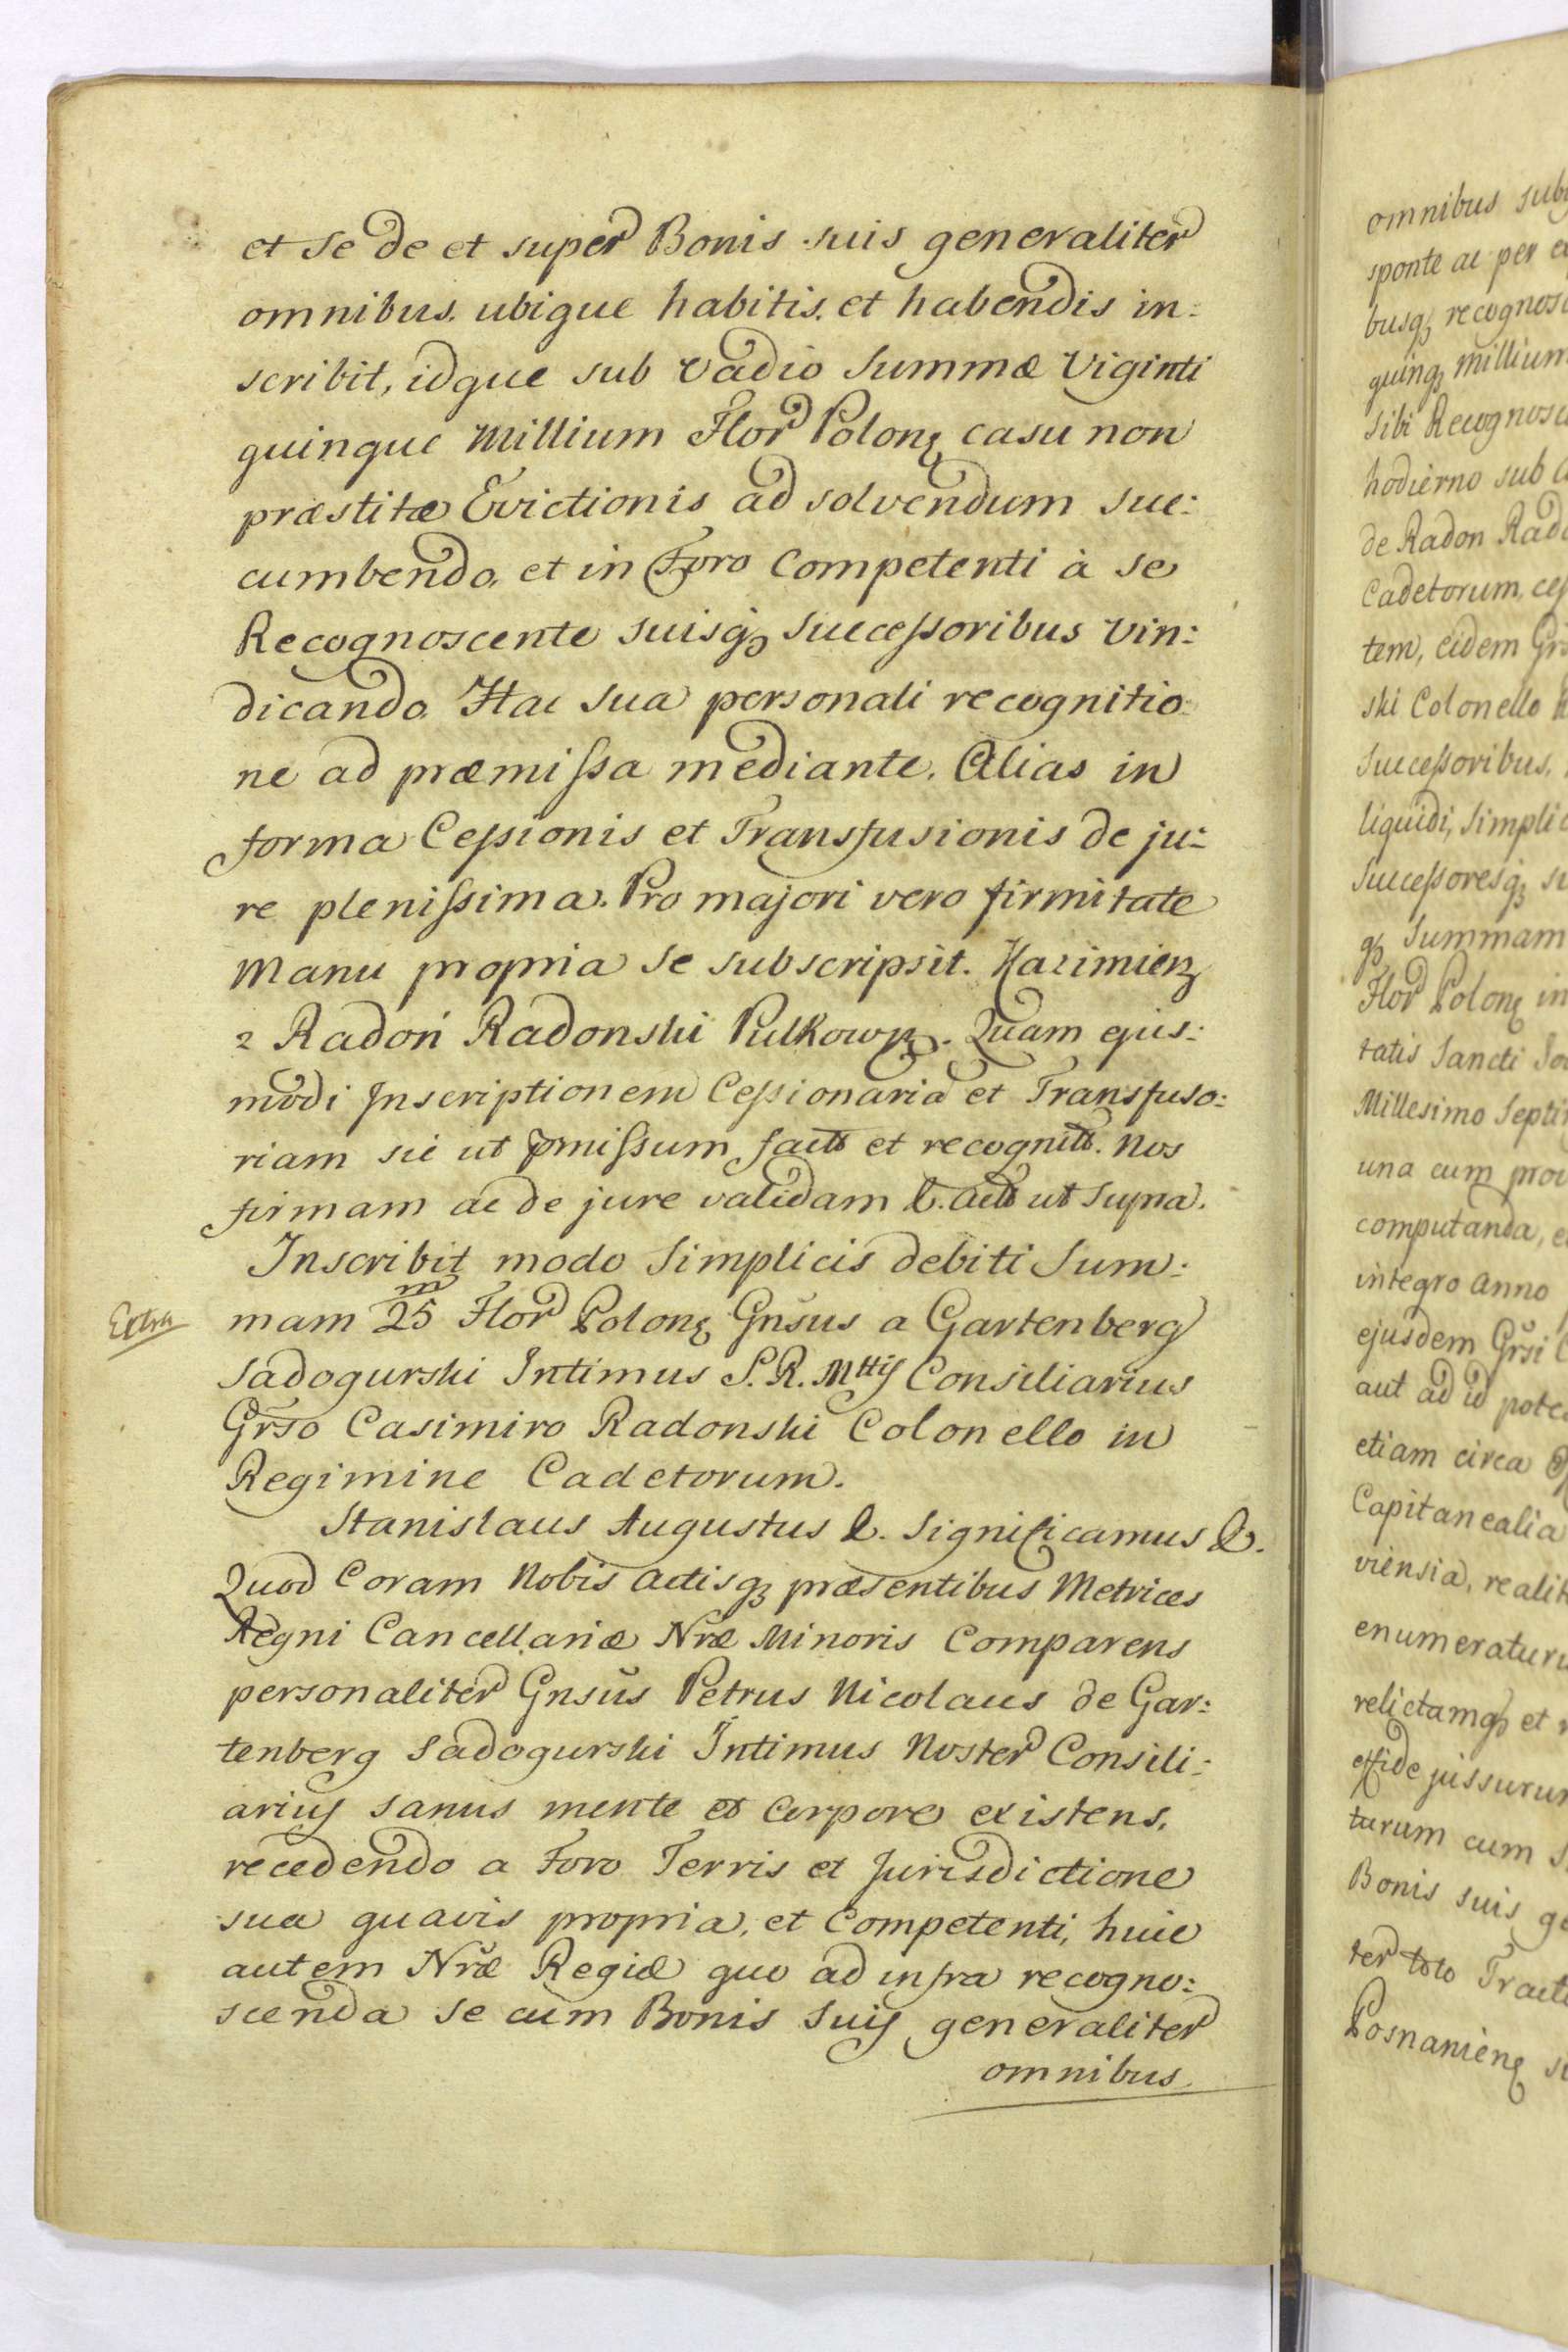 et se de et super Bonis suis generaliter
omnibus. ubique habitis. et habendis in:
scribit, idque sub vadio Summæ Viginti
quinque Millium Flor Polonę casu non
præstitæ Evictionis ad solvendum suc:
cumbendo, et in Foro Competenti à se
Recognoscente suisqꝫ Successoribus vin:
dicando. Hac sua personali recognitio:
ne ad præmissa mediante. Alias in
forma Cessionis et Transfusionis de ju:
re plenissima. Pro majori vero firmitate
Manu propria se subscripsit. Kazimierz
z Radoń Radonski Pulkow. Quam ejus:
modi Inscriptionem Cessionariã et Transfuso:
riam sic ut pmissum fact et recognit. Nos
firmam ac de jure validam &. act ut Supra.
Inscribit modo Simplicis debiti Sum:
Extra
mam 25 m Flor Polonę Gnsus a Gartenberg
Sadogurski Intimus S. R. Mttis Consiliarius
Grso Casimiro Radonski Colonello in
Regimine Cadetorum.
Stanislaus Augustus &. Significamus &.
Quod Coram Nobis Actisqꝫ præsentibus Metrices
Regni Cancellariæ Nræ Minoris Comparens
personaliter Gnsus Petrus Nicolaus de Gar:
tenberg Sadogurski Intimus Noster Consili:
arius sanus mente et Corpore existens,
recedendo a Foro Terris et Jurisdictione
sua quavis propria, et Competenti, huic
autem Nræ Regiæ quo ad infra recogno:
scenda se cum Bonis Suis generaliter
omnibus.
omnibus sub
sponte ac per e
busqꝫ recognos
quinqꝫ millium
Sibi Recognosc
hodierno sub
de Radon Rad
Cadetorum, ces
tem, eidem Gr
ski Colonello
Successoribus,
liquidi, Simplic
Successoresqꝫ s
qꝫ Summam
Flor Polonę in
tatis Sancti Jo
Millesimo Septi
una cum pro
computanda, e
integro Anno
ejusdem Grsi
aut ad id pote
etiam circa
Capitanealia
viensia, realit
enumeratur
relictamqꝫ et
effide jussurum
turum cum
Bonis suis ge
ter toto Tract
Posnaniênę s